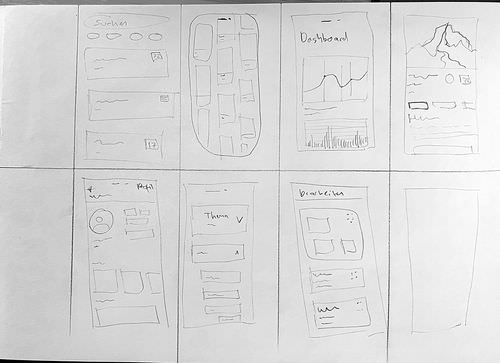 Suchen
Dashboard
Profil
Thema
bearbeiten